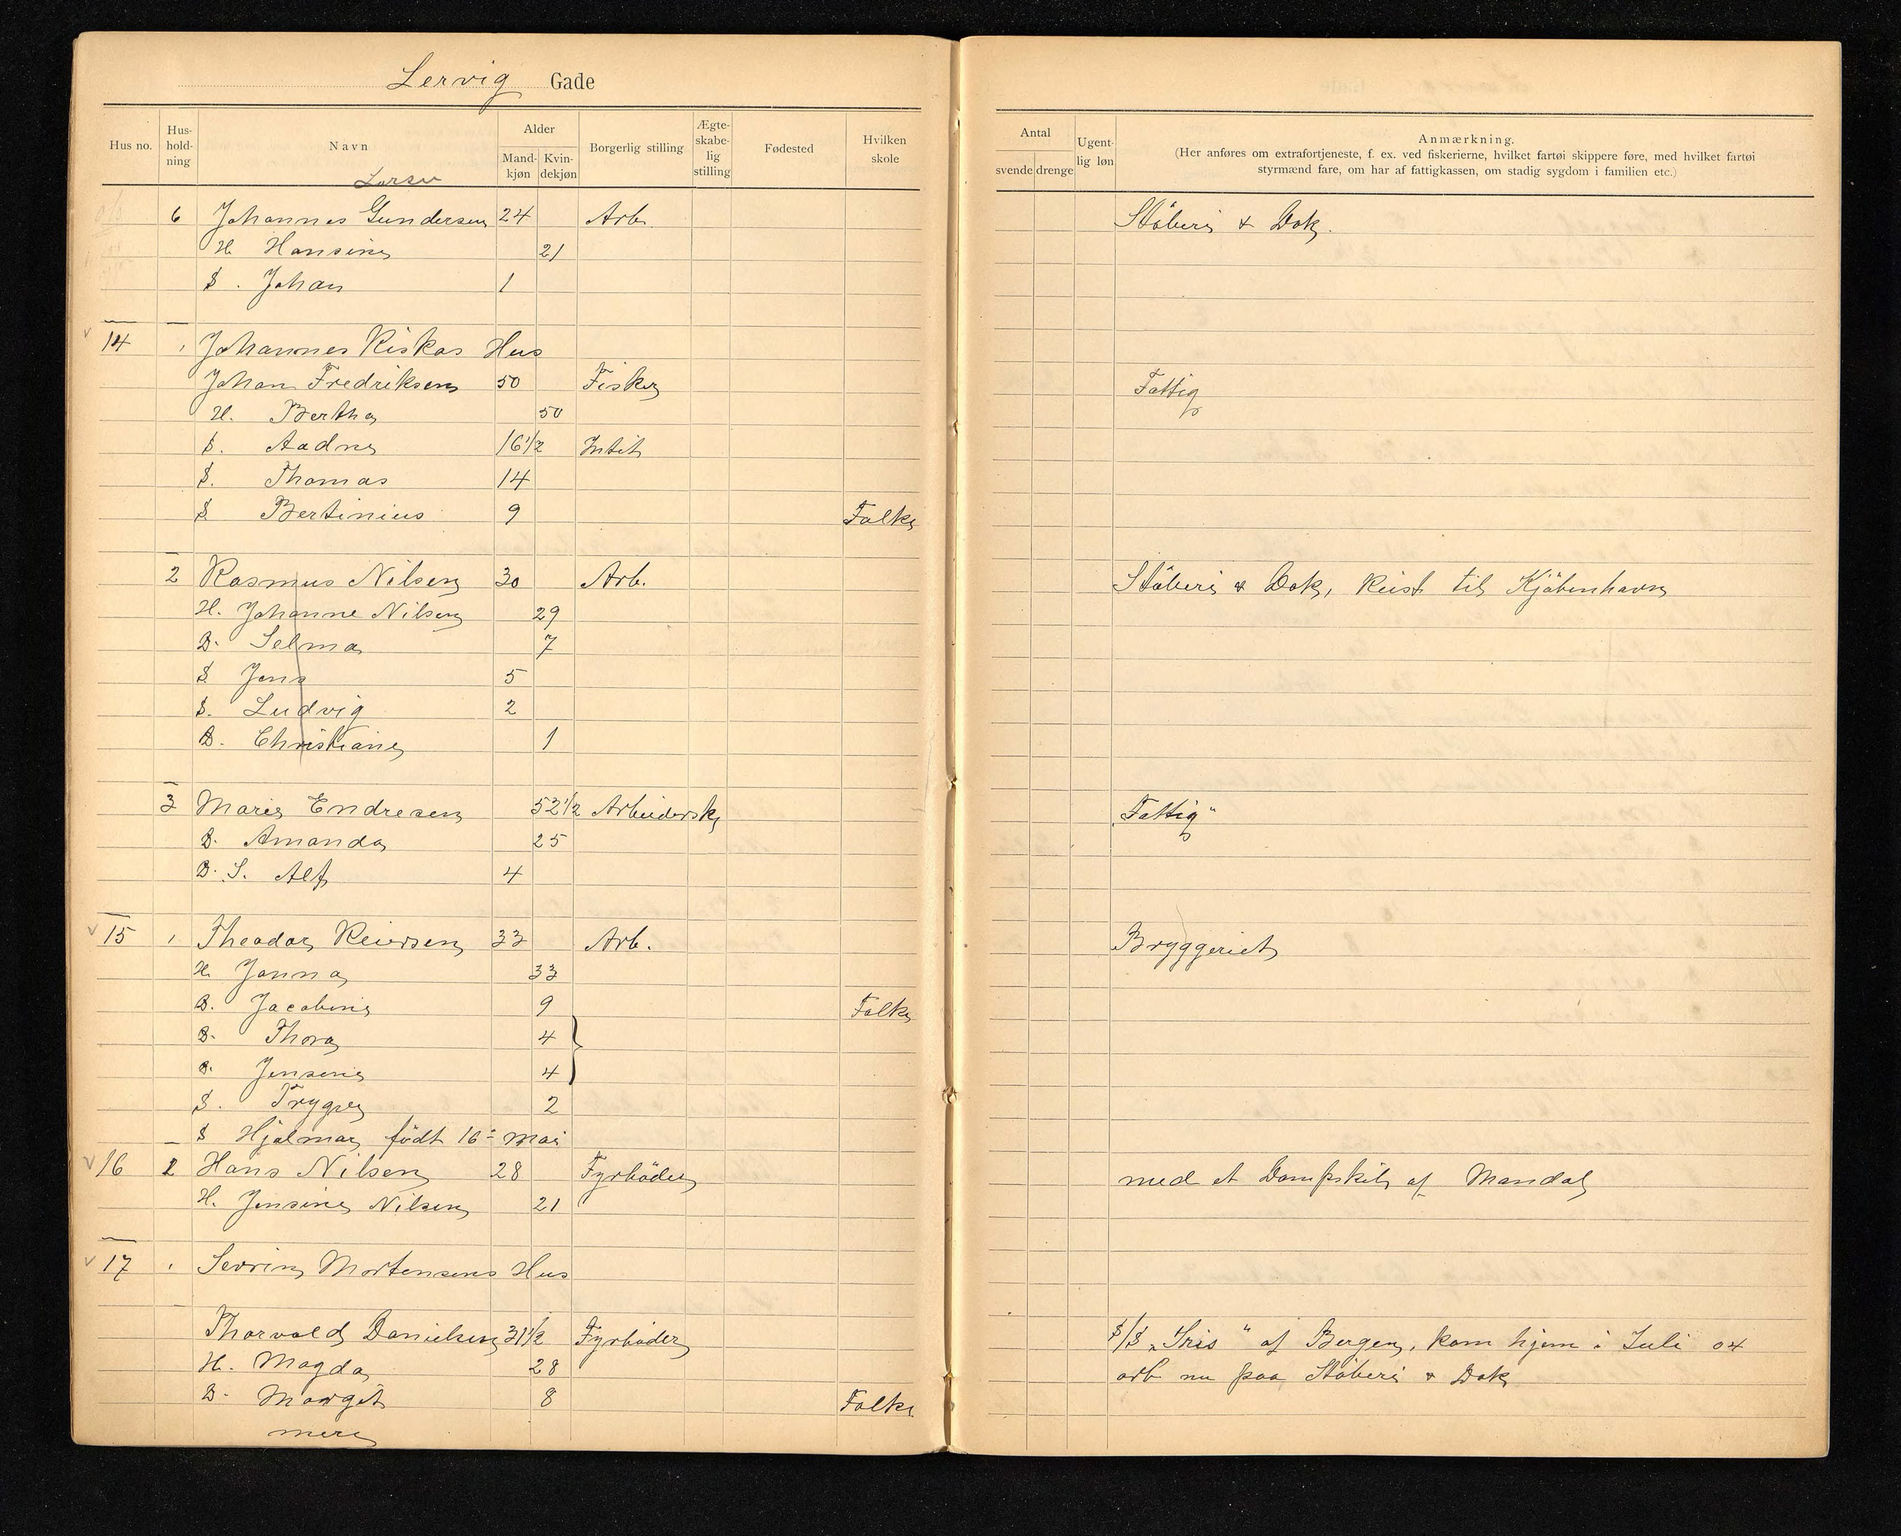 Lervig Gade
Hus no. Hus-hold-ning Navn Alder Mand-kjøn Kvin-dekjøn Borgerlig stilling Ægte-skabe-lig stilling Fødested Hvilken skole
Antal svende drenge Ugent-lig løn Anmærkning.
(Her anføres om extrafortjeneste, f. ex. ved fiskerierne, hvilket fartøi skippere føre, med hvilket fartøi
styrmænd fare, om har af fattigkassen, om stadig sygdom i familien etc.)
6 Johannes Gundersen 24 Arb. Støberi & Dok.
H. Hansine 21
S. Johan 1
14 1 Johannes Riskas Hus
Johan Fredriksen 50 Fisker Fattig
H. Bertha 50
S. Aadne 16 1/2 Intet
S. Thomas 14
S. Bertinius 9 Folke
2 Rasmus Nilsen 30 Arb. Støberi & Dok, Reist til Kjøbenhavn
H. Johanne Nilsen 29
D. Selma 7
S. Jens 5
S. Ludvig 2
D. Christiane 1
3 Marie Endresen 52 1/2 Arbeidersk Fattig"
D. Amanda 25
D. S. Alf 4
15 1 Theodor Reiersen 33 Arb. Bryggeriet
H. Janna 33
D. Jacobine 9 Folke
D. Thora 4
D. Jensine 4
S. Trygve 2
S Hjalmar født 16de mai
16 1 Hans Nilsen 28 Fyrbøder med et Dampskib af Mandal
H. Jensine Nilsen 21
17 1 Sevrin Mortensens Hus
Thorvald Danielsen 31 1/2 Fyrbøder S/S "Iris" af Bergen, kom hjem i Juli 04
H. Magda 28 arb nu paa Støberi & Dok
D. Margit 8 Folke
mere